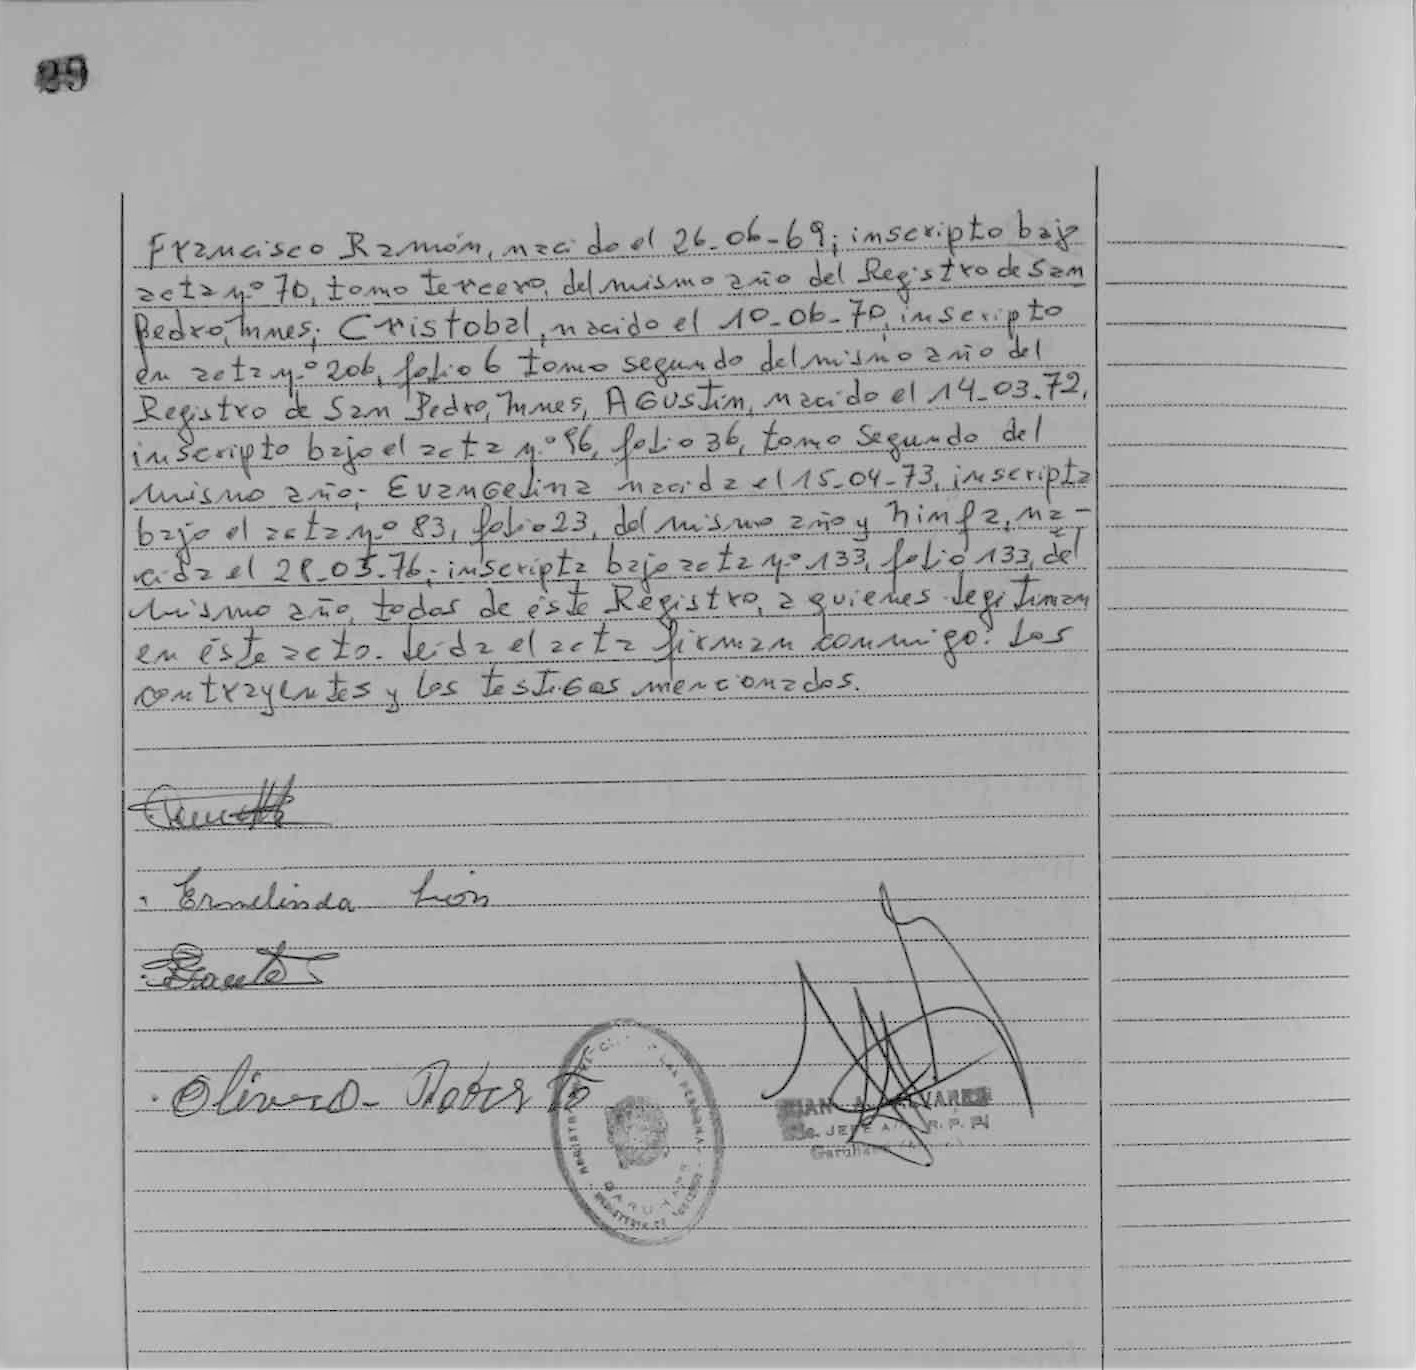 89
Francisco Ramón, nacido el 26-06-69; inscripto bajo
acta n.º 70, tomo tercero, del mismo año del Registro de San
Pedro, Mnes; Cristobal, nacido el 10-06-70, inscripto
en acta n.º 206, folio 6 tomo segundo del mismo año del
Registro de San Pedro, Mnes, AGUSTIN, nacido el 14-03-72,
inscripto bajo el acta n.º 96, folio 36, tomo segundo del
mismo año; Evangelina nacida el 15-04-73, inscripta
bajo el acta n.º 83, folio 23, del mismo año y Ninfa, na-
cida el 28-05-76; inscripta bajo acta n.º 133, folio 133, del
mismo año, todos de éste Registro, a quienes legitiman
en éste acto. Leida el acta firman conmigo: los
contrayentes y los testigos mencionados.
Ermelinda León
Olivera - Roberto
ALVAREZ
JEFE